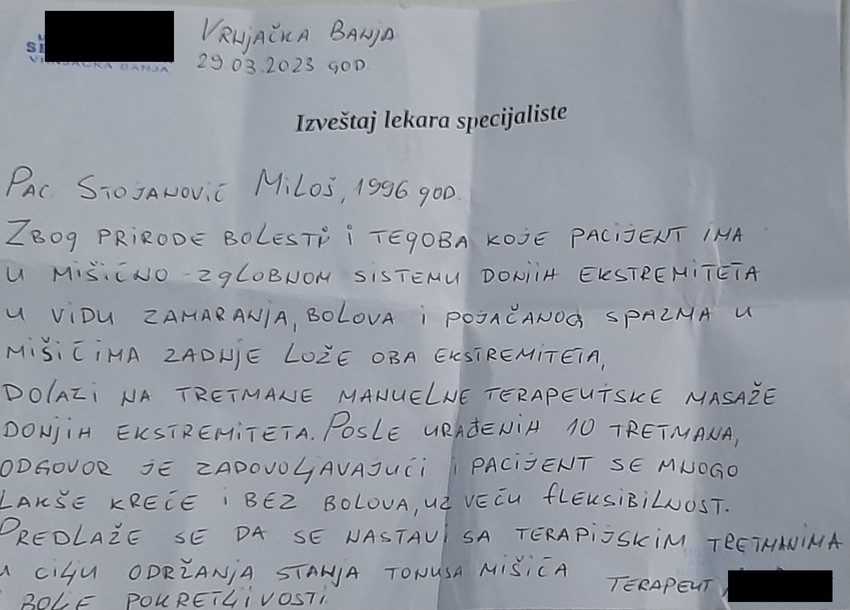 VRNJAČKA BANJA
29.03.2023 GOD
VRNJAČKA BANJA
Izveštaj lekara specijaliste
PAC. STOJANOVIĆ MILOŠ, 1996 GOD.
ZBOG PRIRODE BOLESTI I TEGOBA KOJE PACIJENT IMA
U MIŠIĆNO-ZGLOBNOM SISTEMU DONJIH EKSTREMITETA
U VIDU ZAMARANJA, BOLOVA I POJAČANOG SPAZMA U
MIŠIĆIMA ZADNJE LOŽE OBA EKSTREMITETA,
DOLAZI NA TRETMANE MANUELNE TERAPEUTSKE MASAŽE
DONJIH EKSTREMITETA. POSLE URAĐENIH 10 TRETMANA,
ODGOVOR JE ZADOVOLJAVAJUĆI I PACIJENT SE MNOGO
LAKŠE KREĆE I BEZ BOLOVA, UZ VEĆU FLEKSIBILNOST.
PREDLAŽE SE DA SE NASTAVI SA TERAPIJSKIM TRETMANIMA
U CILJU ODRŽANJA STANJA TONUSA MIŠIĆA
I BOLJE POKRETLJIVOSTI.
TERAPEUT